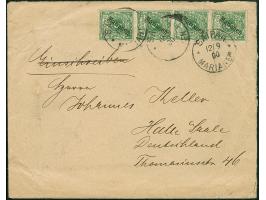 12/9
00
MARIANEN
Einschreiben
Herrn
Johannes Keller
Halle Saale
Deutschland
Thomasiusstr 46